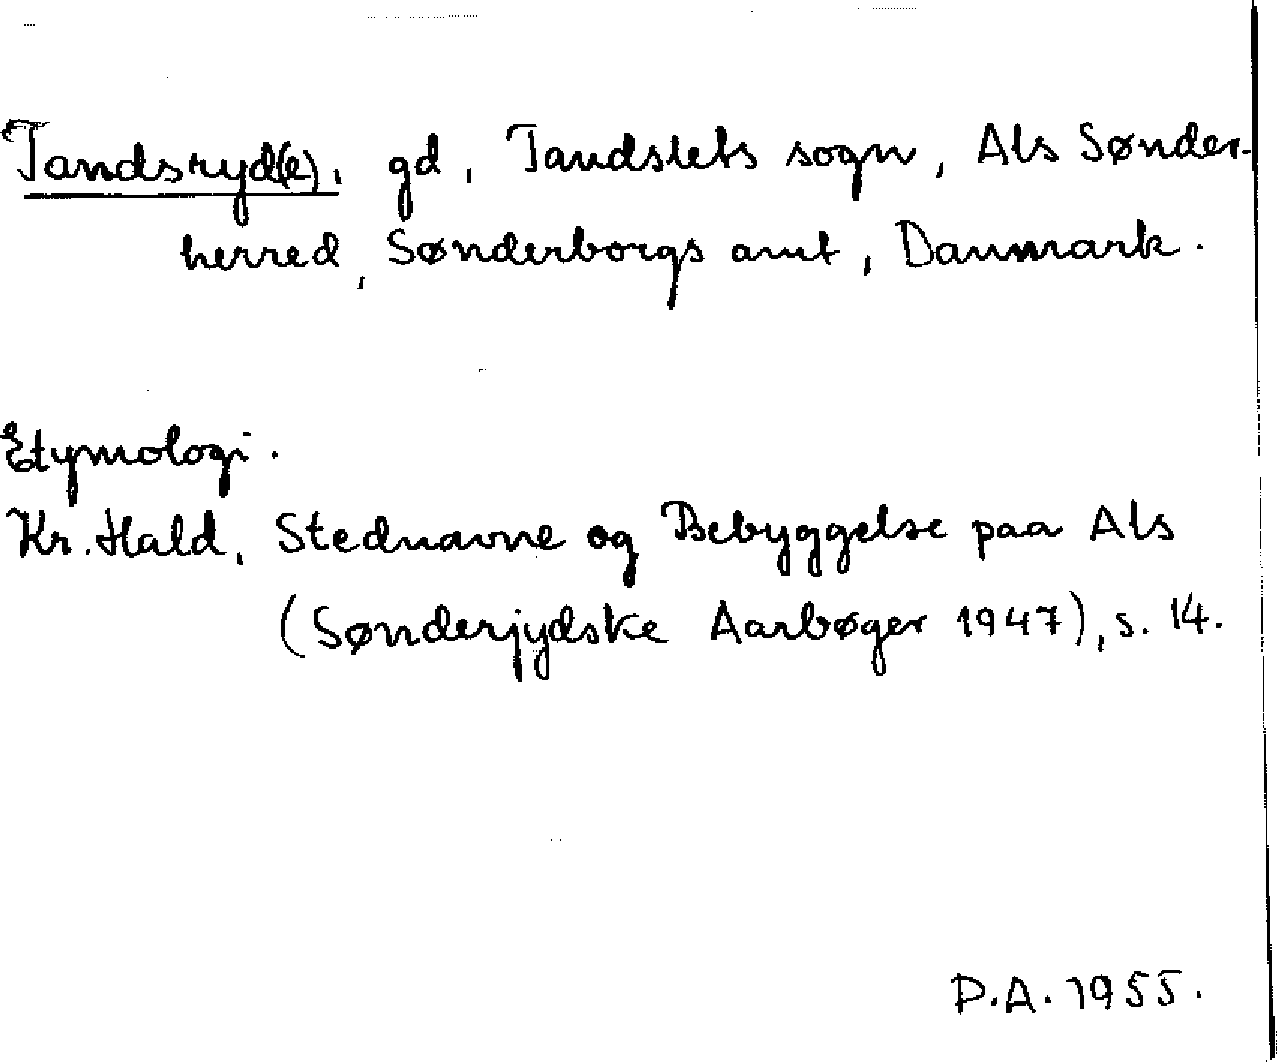 Tandsryd(e), gd, Tandslets sogn, Als Sønder-
herred, Sønderborgs amt, Danmark.
Etymologi.
Kr. Hald, Stednavne og Bebyggelse paa Als
(Sønderjydske Aarbøger 1947), s. 14.
P.A. 1955.